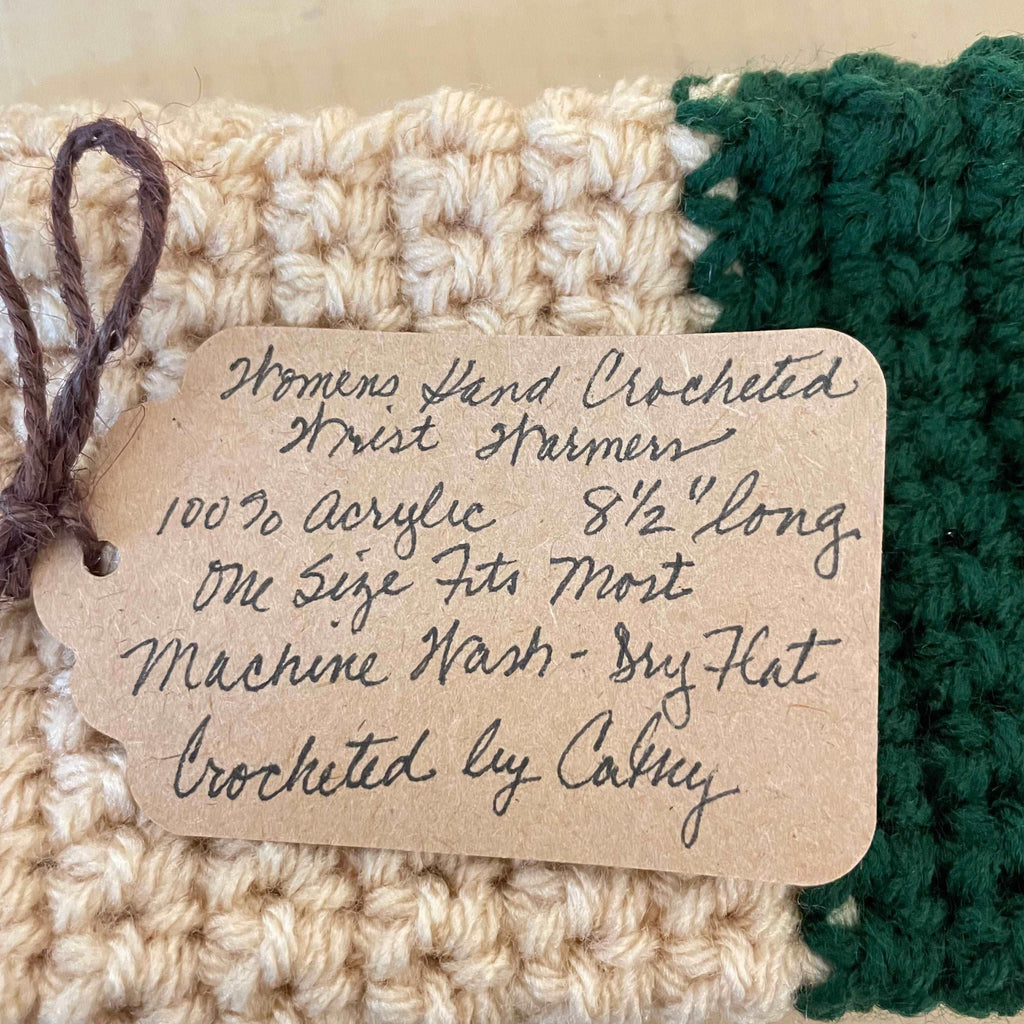 Womens Hand Crocheted
Wrist Warmers
100% Acrylic 8½" long
One Size Fits Most
Machine Wash - Dry Flat
Crocheted by Cathy